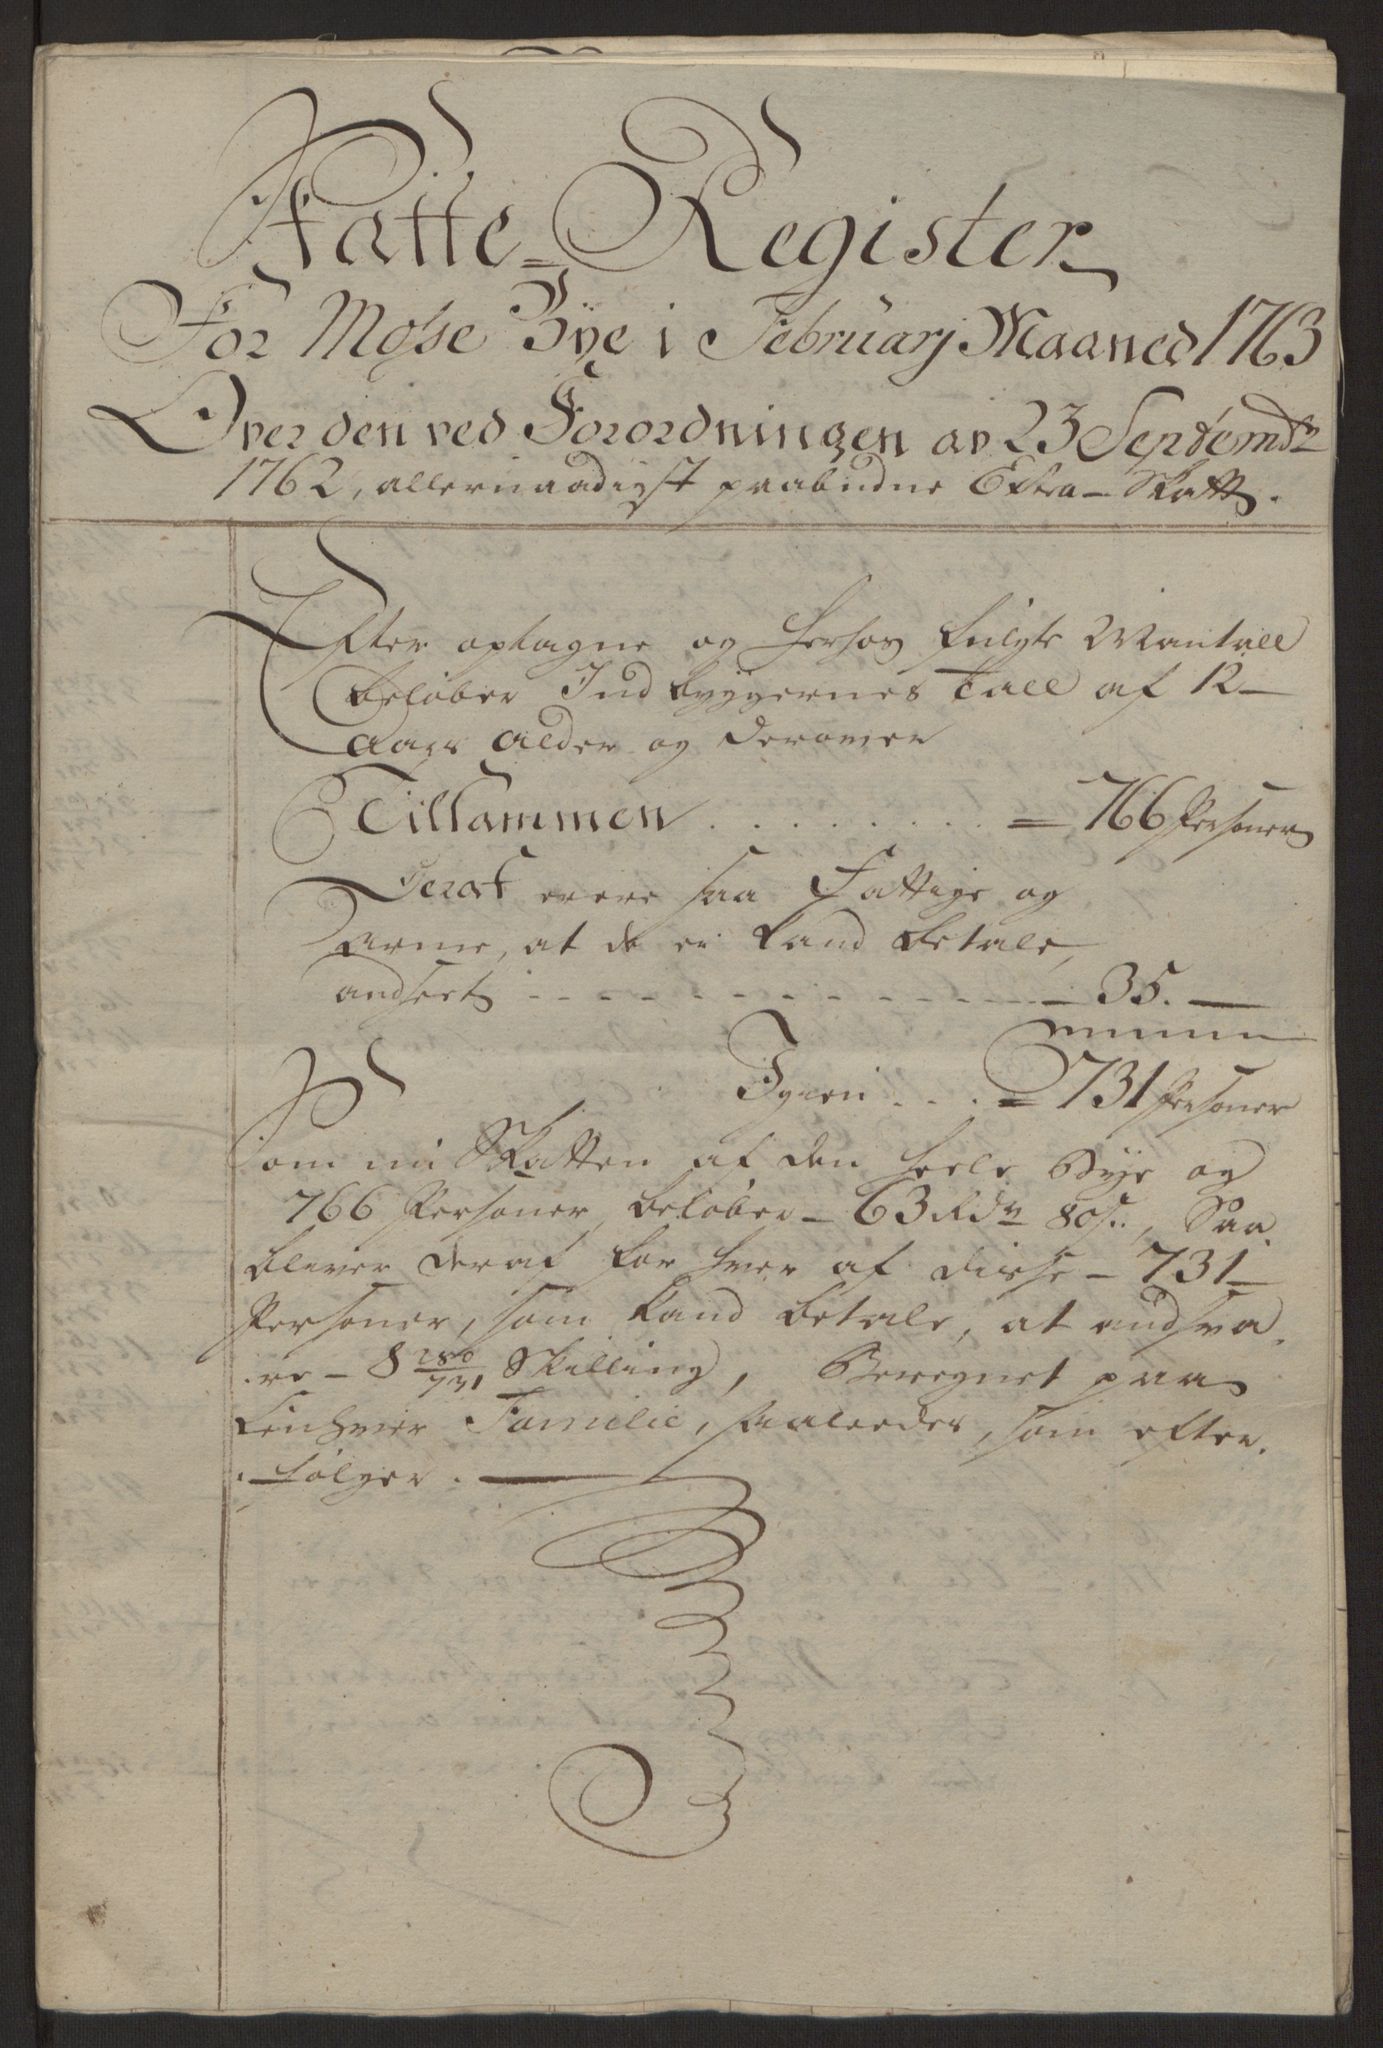 Skatte-Register
For Mosse Bÿe i Februarj Maaned 1763
Over den ved Forordningen av 23 Septembr
1762, allernaadigst paabudne Extra-Skatt.
Efter optagne og herhos fulgte Mantall
beløber Indbyggernes Tall af 12
Aars Alder og derover
Tilsammen . . . . . . . . = 766 Personer
Deraf ere saa Fattige og
arme, at de ei kand betale,
andført - - - - - - - - - - 35.
Igien . . . = 731 Personer
Som nu Skatten af den heele Bÿe og
766 Personer, beløber - 63 Rdr 80 s., Saa
bliver deraf for hver af disse - 731 -
Personer, som kand betale, at andsva-
re - 8 280/731 Skilling, Beregnet paa
Eenhver Familie, saaledes, som efter-
følger.